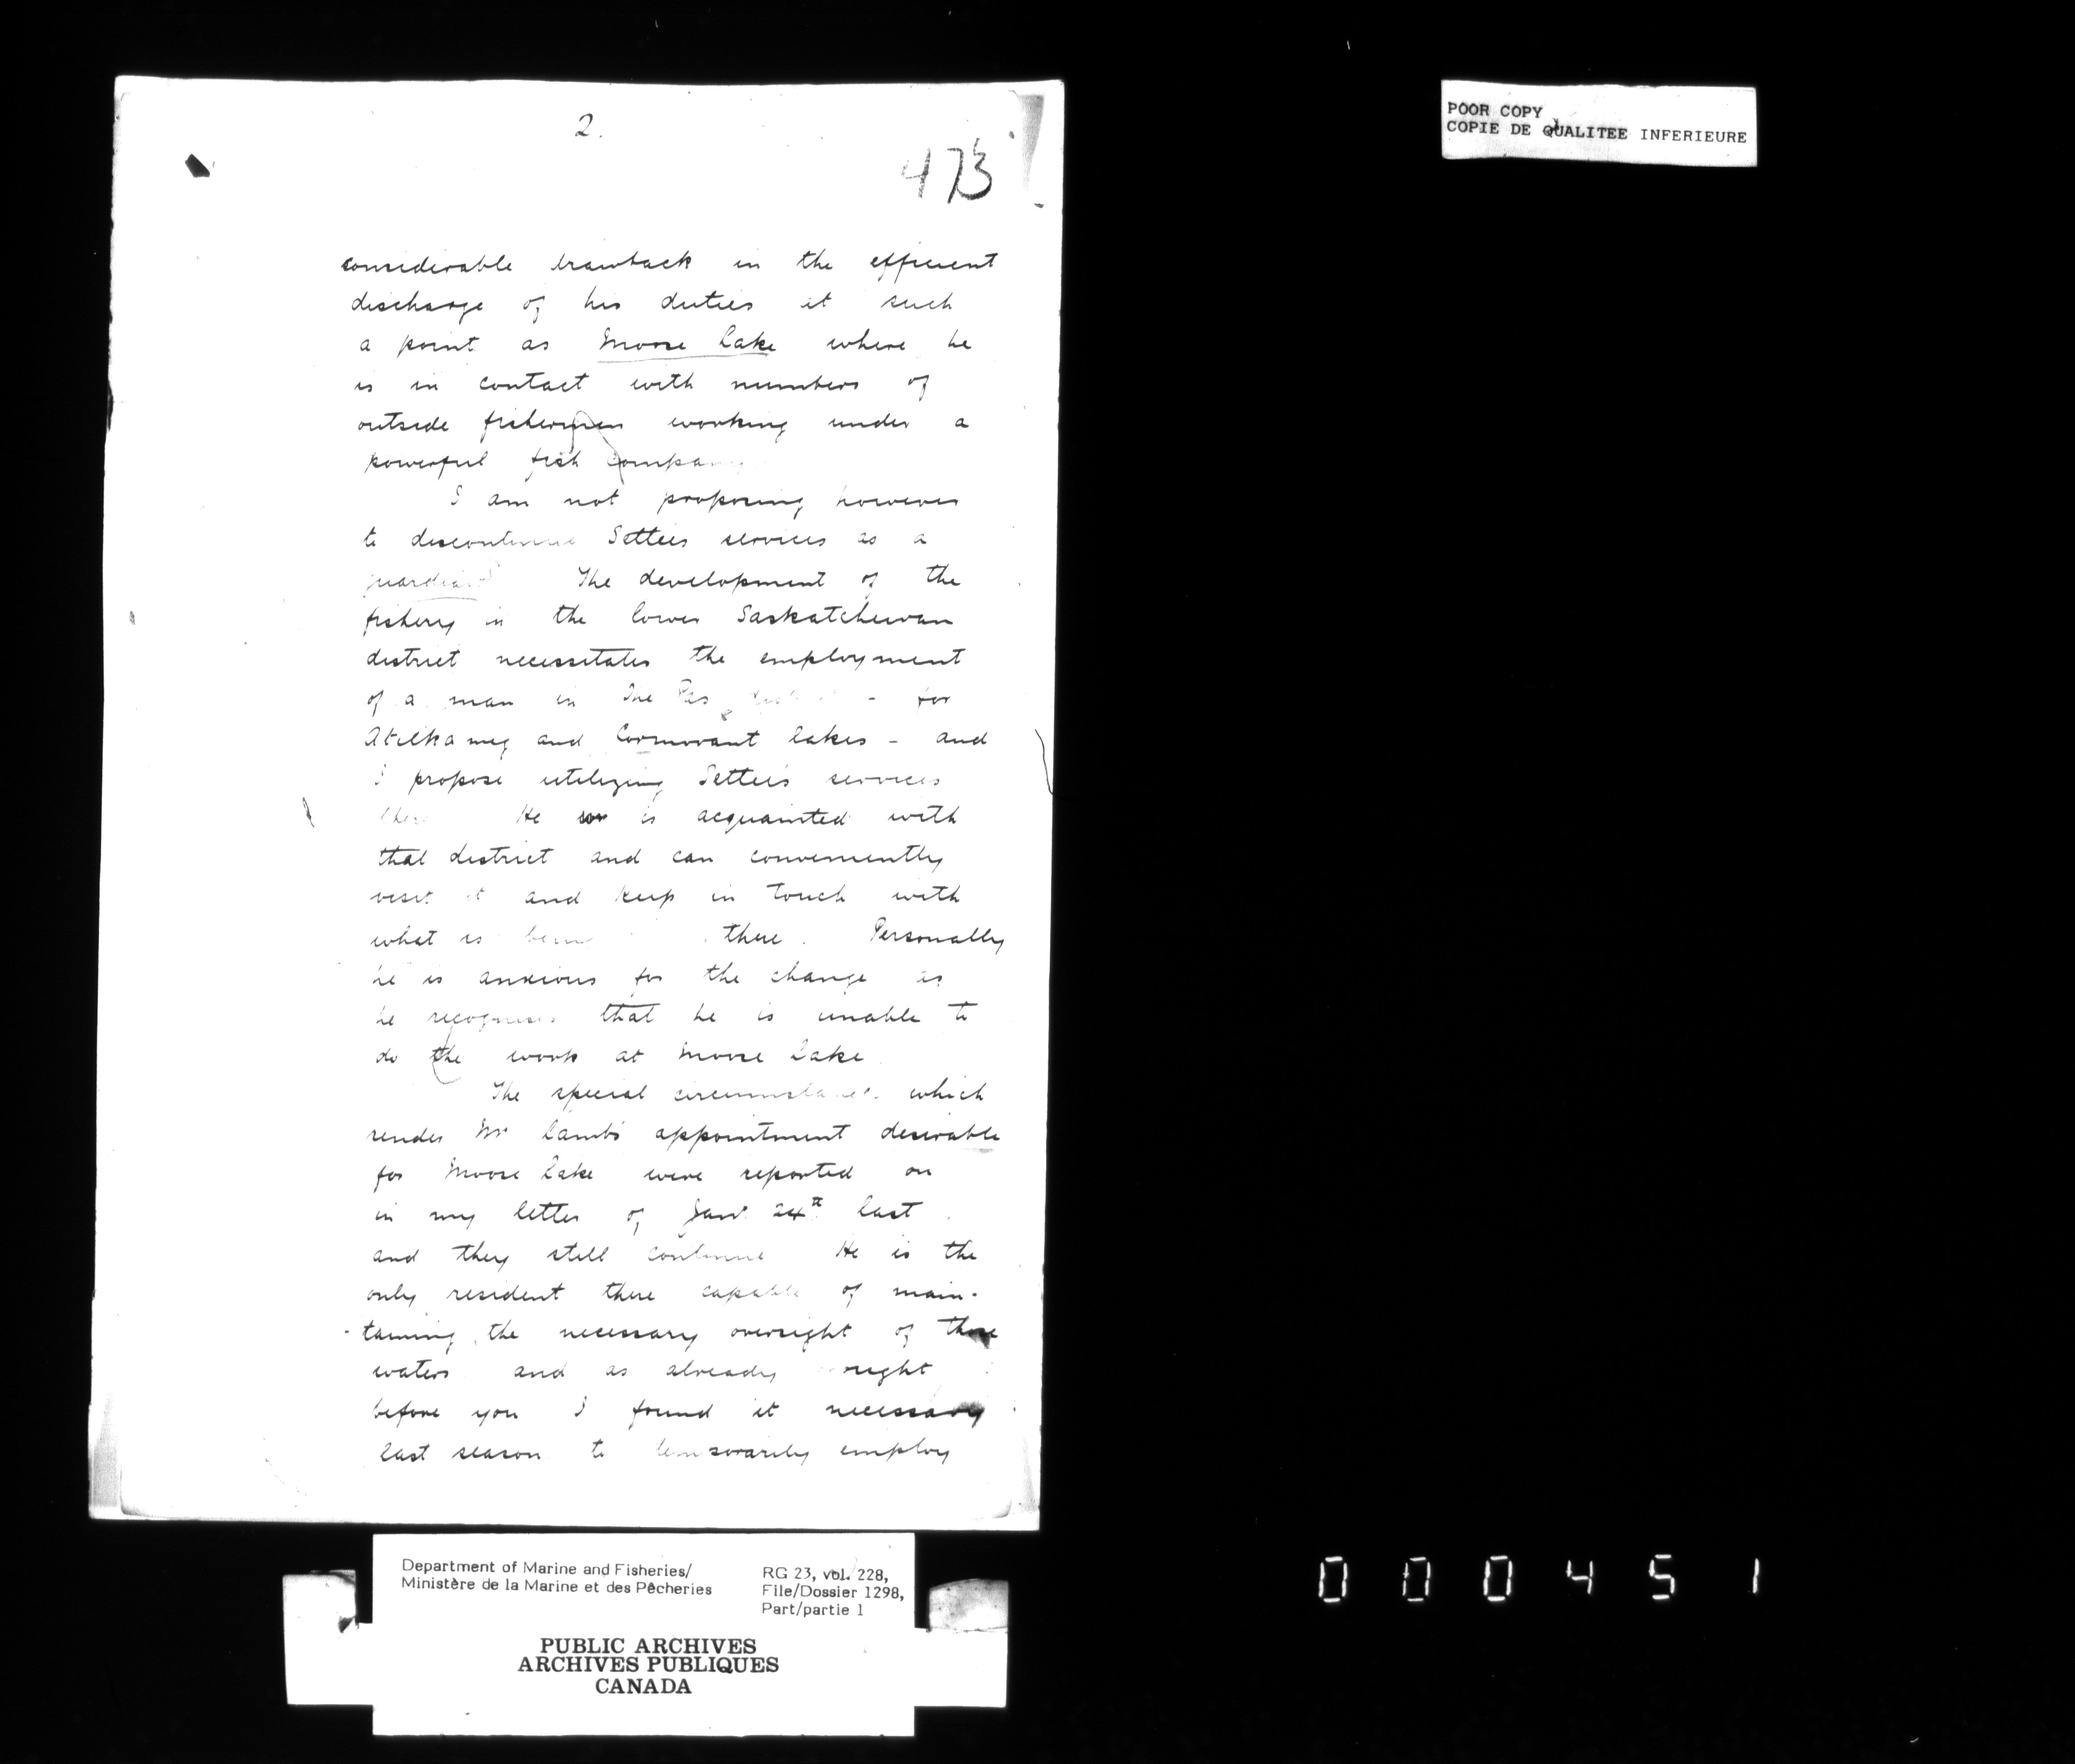 2.
473
considerable drawback in the efficient
discharge of his duties at such
a point as Moose Lake where he
is in contact with numbers of
outside fishermen working under a
powerful fish company
I am not proposing however
to discontinue Settees services as a
guardian The development of the
fishery in the lower Saskatchewan
district necessitates the employment
of a man in The Pas district - for
Atikameg and Cormorant lakes - and
I propose utilizing Settee's services
there He is acquainted with
that district and can conveniently
visit it and keep in touch with
what is being there. Personally
he is anxious for the change as
he recognises that he is unable to
do the work at Moose Lake
The special circumstances which
render Mr Lamb's appointment desirable
for Moose Lake were reported on
in my letter of Jany 24th last
and they still continue He is the
only resident there capable of main-
-taining the necessary oversight of those
waters and as already
before you I found it necessary
last season to temporarily employ
POOR COPY
COPIE DE QUALITEE INFERIEURE
Department of Marine and Fisheries/
Ministère de la Marine et des Pêcheries
RG 23, vol. 228,
File/Dossier 1298,
Part/partie 1
PUBLIC ARCHIVES
ARCHIVES PUBLIQUES
CANADA
000451